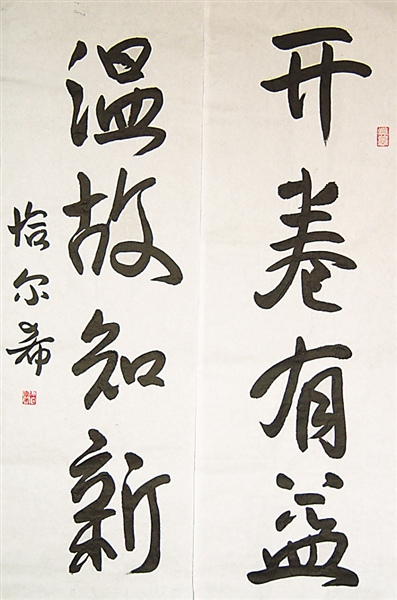 开卷有益
温故知新
恰尔希